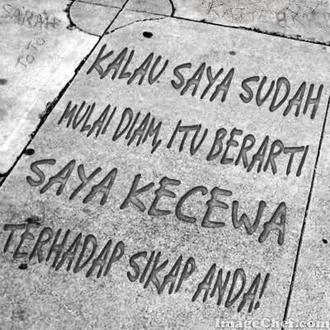 SARAH
TOTO
KALAU SAYA SUDAH
MULAI DIAM, ITU BERARTI
SAYA KECEWA
TERHADAP SIKAP ANDA!
ImageChef.com